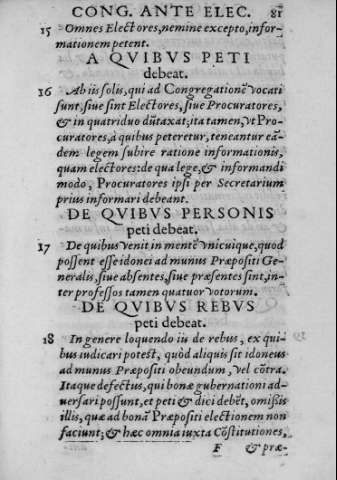 CONG. ANTE ELEC. 81
15 Omnes Electores, nemine excepto, infor-
mationem petent.
A QVIBVS PETI
debeat.
16 Ab iis solis, qui ad Congregationē vocati
sunt, siue sint Electores, siue Procuratores,
& in quatriduo dūtaxat; ita tamen, vt Pro-
curatores, à quibus peteretur, teneantur eā-
dem legem subire ratione informationis,
quam electores: de qua lege, & informandi
modo, Procuratores ipsi per Secretarium
prius informari debeant.
DE QVIBVS PERSONIS
peti debeat.
17 De quibus venit in mentē vnicuique, quod
possent esse idonei ad munus Præpositi Ge-
neralis, siue absentes, siue præsentes sint, in-
ter professos tamen quatuor votorum.
DE QVIBVS REBVS
peti debeat.
18 In genere loquendo iis de rebus, ex qui-
bus iudicari potest, quòd aliquis sit idoneus
ad munus Præpositi obeundum, vel cōtra.
Itaque defectus, qui bonæ gubernationi ad-
uersari possunt, et peti & dici debēt, omissis
illis, quæ ad bonā Præpositi electionem non
faciunt; & hæc omnia iuxta Cōstitutiones,
F & præ-